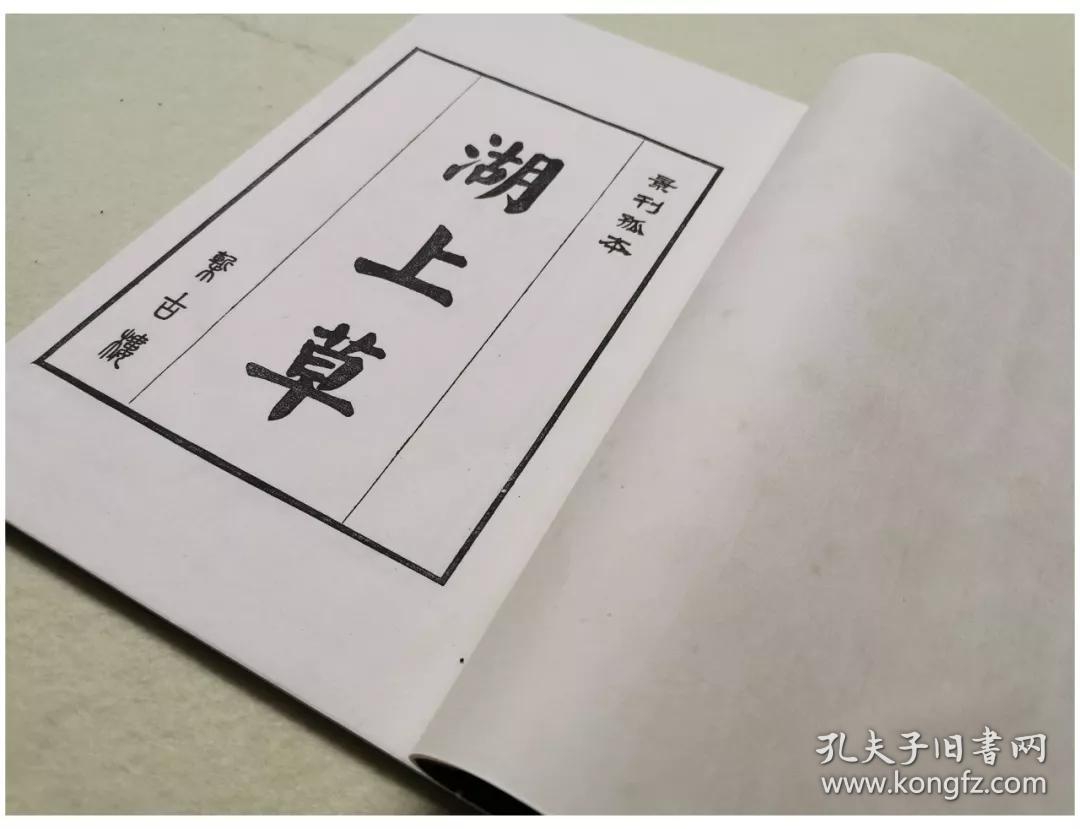 景刊孤本
湖上草
古樓
孔夫子旧書网
www.kongfz.com